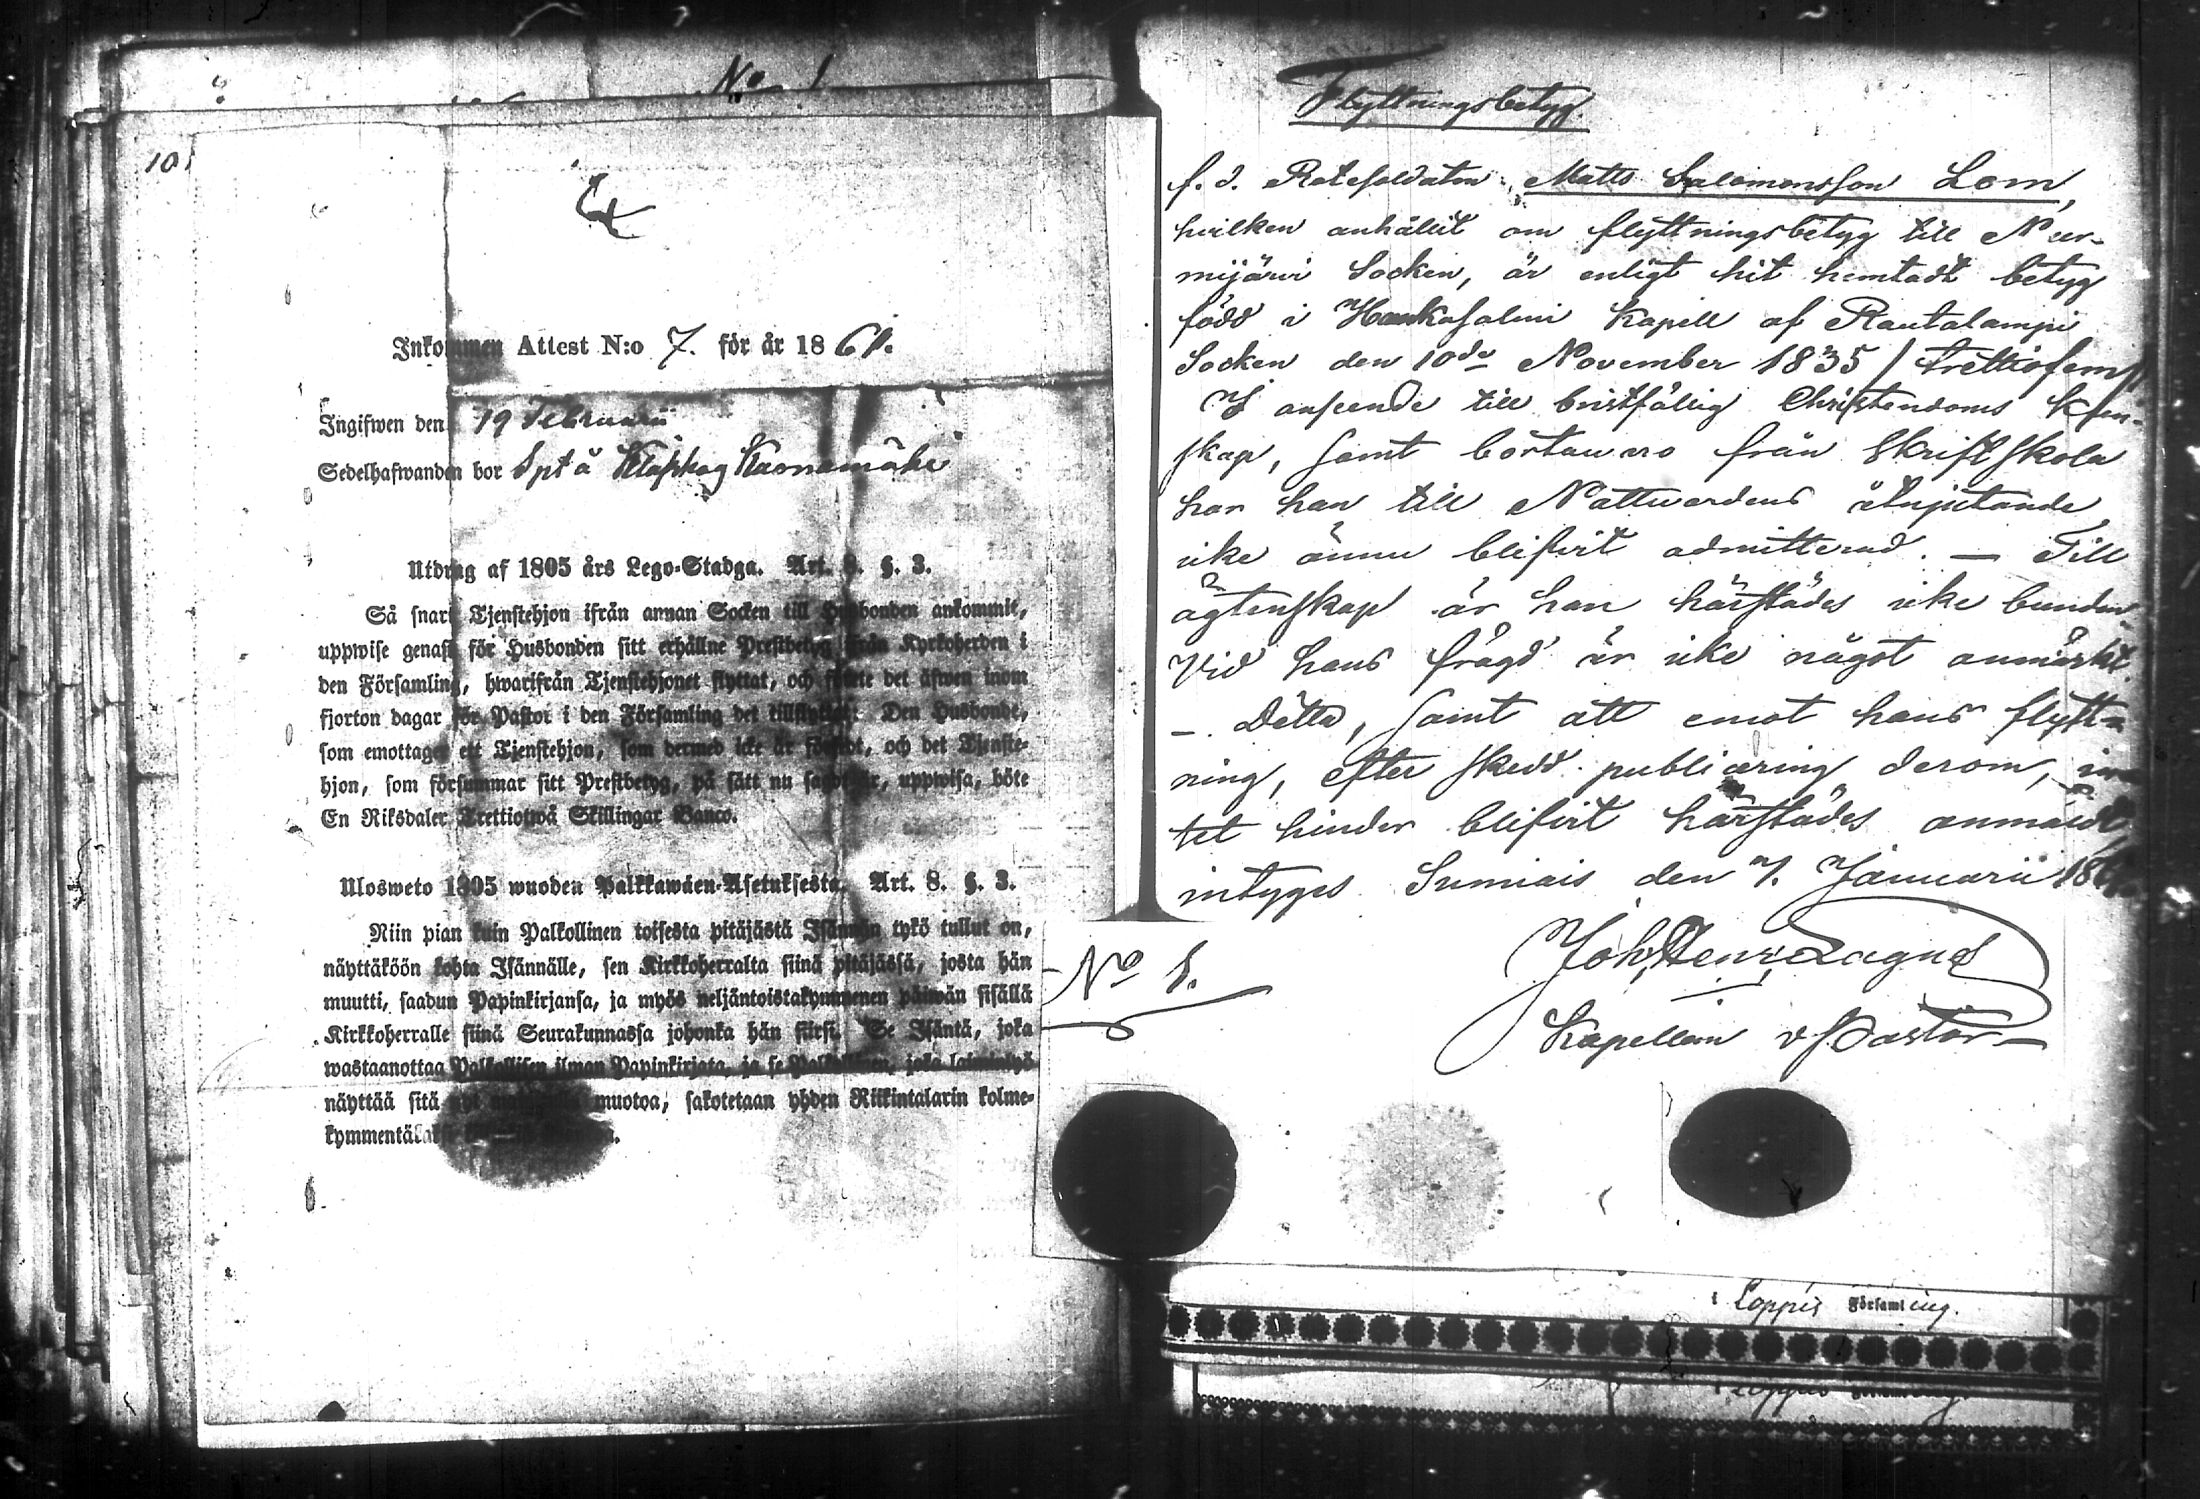 No 1
101
Inkommen Attest N:o 7. för år 1861.
Ingifwen den 19 Februarii
Sedelhafwanden bor Spt å
Utdrag af 1805 års Lego-Stadga. Art. 8. §. 3.
Så snart Tjenstehjon ifrån annan Socken till Husbonden ankommit,
uppwise genast för Husbonden sitt erhållne Prestbetyg från Kyrkoherden i
den Församling, hwarifrån Tjenstehjonet flyttat, och förete det äfwen inom
fjorton dagar för Pastor i den Församling det tillflyttat. Den Husbonde,
som emottager ett Tjenstehjon, som dermed icke är försedt, och det Tjenste-
hjon, som försummar sitt Prestbetyg, på sätt nu sagdt är, uppwisa, böte
En Riksdaler Trettiotwå Skillingar Banco.
Ulosweto 1805 wuoden Palkkawäen-Asetuksesta. Art. 8. §. 3.
Niin pian kuin Palkollinen toisesta pitäjästä Isännän tykö tullut on,
näyttäköön kohta Isännälle, sen Kirkkoherralta siinä pitäjässä, josta hän
muutti, saadun Papinkirjansa, ja myös neljäntoistakymmenen päiwän sisällä
Kirkkoherralle siinä Seurakunnassa johonka hän siirsi. Se Isäntä, joka
wastaanottaa Palkollisen ilman Papinkirjata, ja se Palkollinen, joka laiminlyö
näyttää sitä muotoa, sakotetaan yhden Riikintalarin kolme-
kymmentä
Flyttningsbetyg.
f. d. Rotesoldaten Matts Salomonsson Lom,
hvilken anhållit om flyttningsbetyg till Nur-
mijärvi Socken, är enligt hit hemtadt betyg
född i Hankasalmi Kapell af Rautalampi
Socken den 10de November 1835 / trettiofem /
I anseende till bristfällig Christendoms kun-
skap, samt bortavaro från Skriftskola
har han till Nattvardens åtnjutande
icke ännu blifvit admitterad. — Till
ägtenskap är han härstädes icke bunden.
Vid hans frägd är icke något anmärkt.
—. Detta, samt att emot hans flytt-
ning, efter skedd publicering derom, in-
tet hinder blifvit härstädes anmäldt,
intygas. Sumiais den 7. Januarii 186
Joh, Henr, Lagus
Kapellan v Pastor —
No 1.
i Loppis Församling.
Loppis